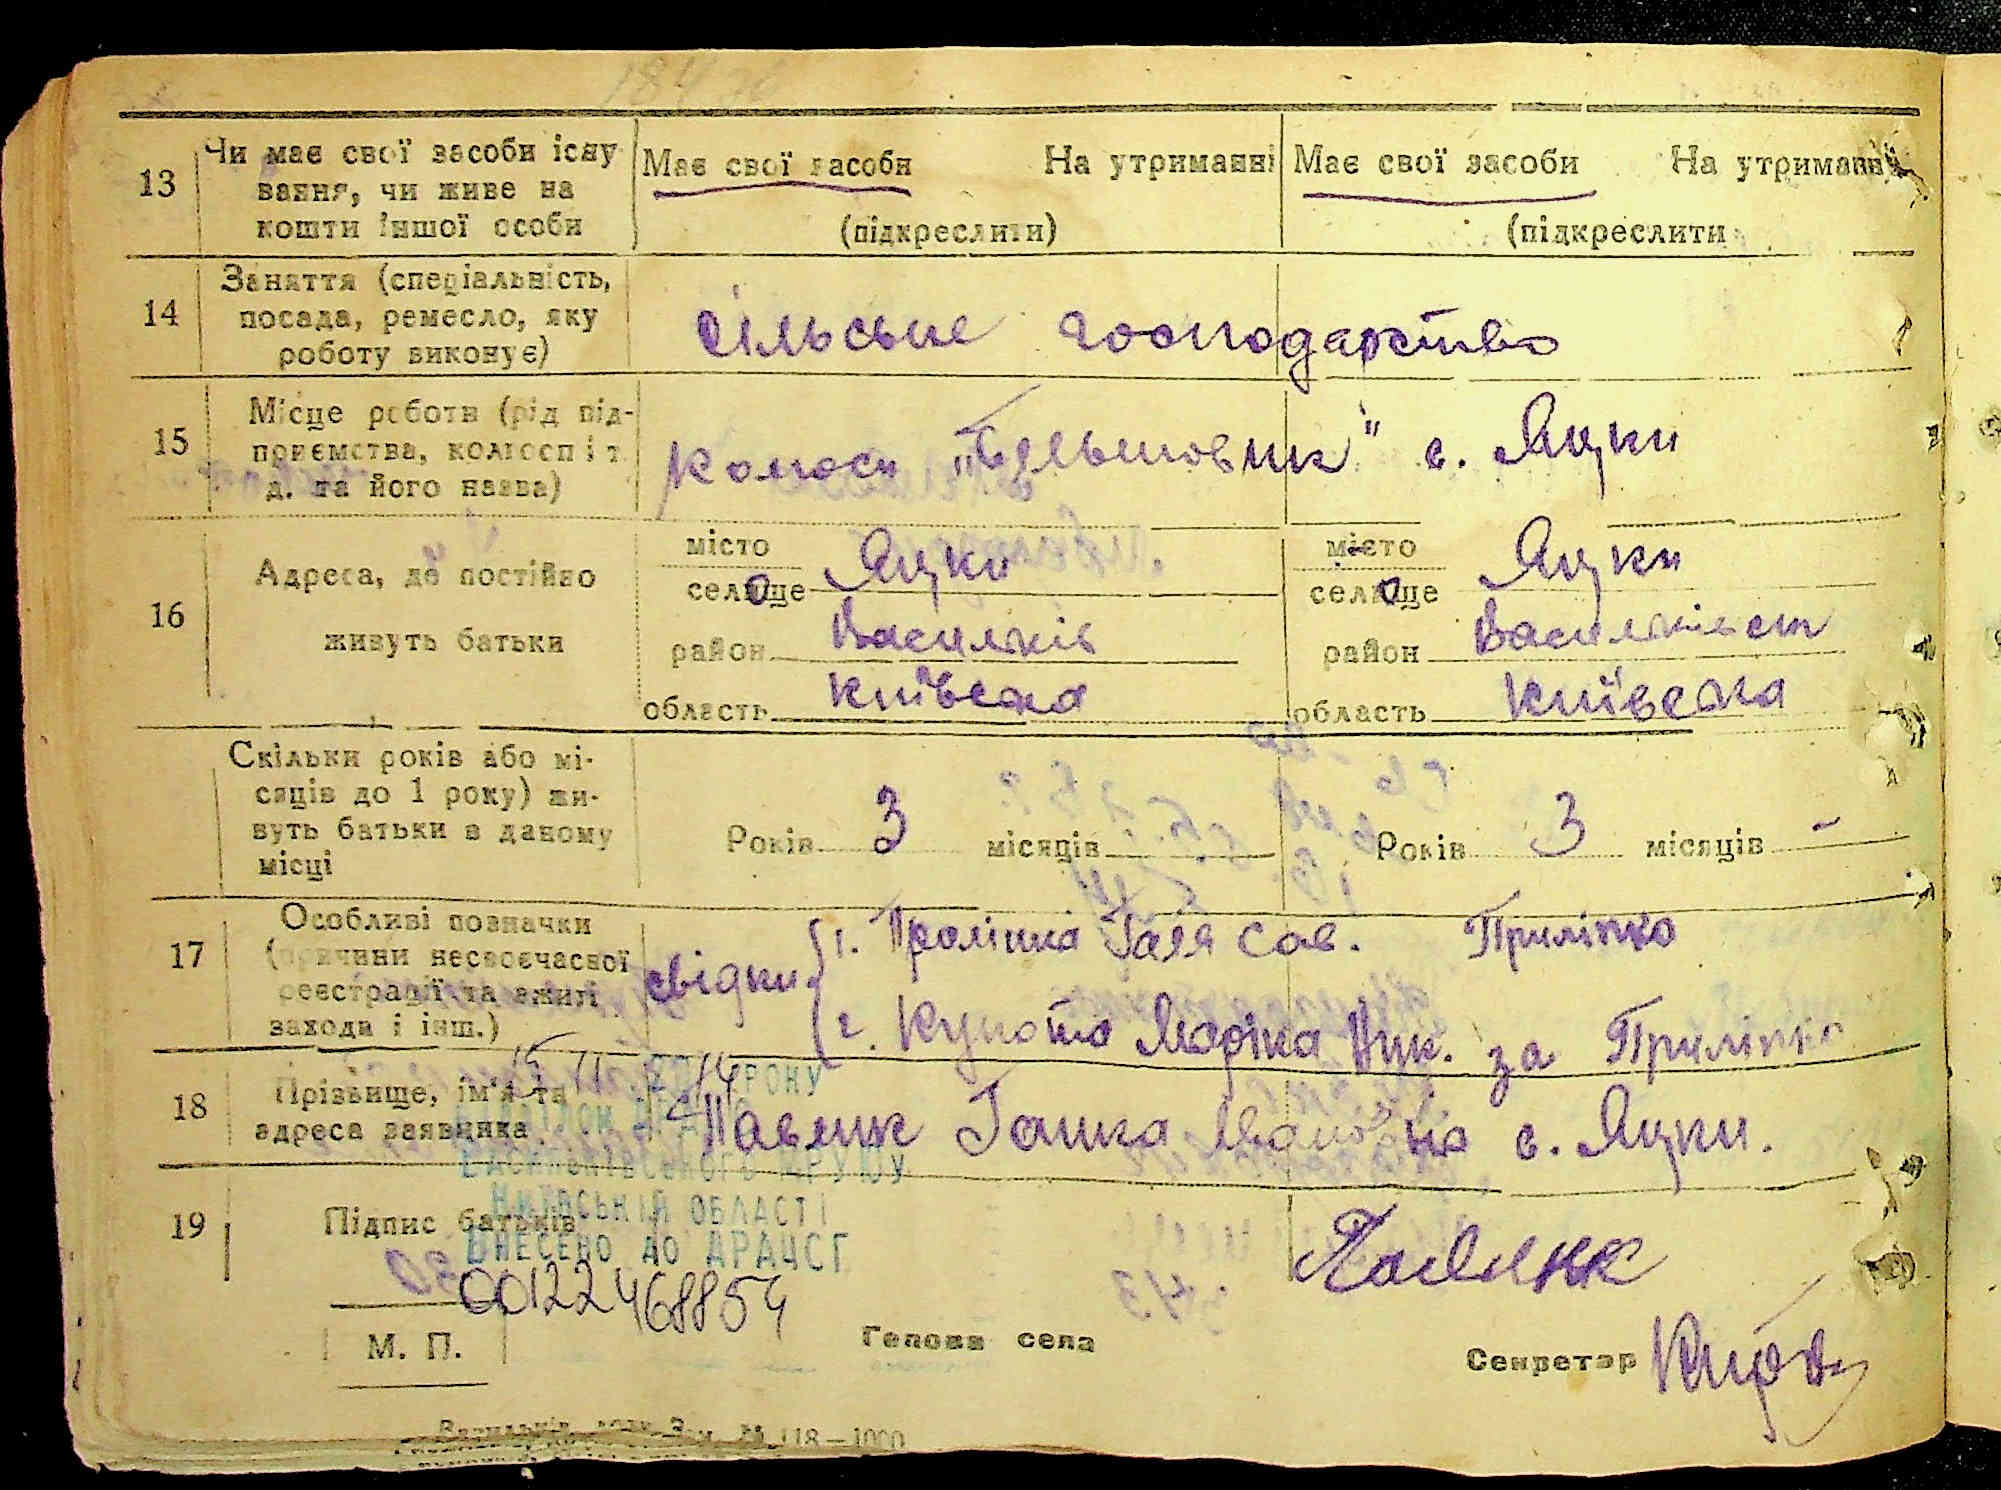 13 Чи має свої засоби існу
вання, чи живе на
кошти іншої особи
Має свої засоби На утриманні
(підкреслити)
Має свої засоби На утриманні
(підкреслити
14 Заняття (спеціальність,
посада, ремесло, яку
роботу виконує)
сільське господарство
15 Місце роботи (рід під-
приємства, колгосп і т
д. та його назва)
колгосп „Більшовик" с. Яцки
16 Адреса, де постійно
живуть батьки
місто
селище Яцки
район Васильків
область Київська
місто
селище Яцки
район Васильківськ
область Київська
Скільки років або мі-
сяців до 1 року) жи-
вуть батьки в даному
місці
Років 3 місяців
Років 3 місяців -
17 Особливі позначки
(причини несвоєчасної
реєстрації та вжиті
заходи і інш.)
свідки 1. Галя Сав. Приліпко
2. Марійка за Приліпко
18 Прізвище, ім'я та
адреса заявника
Павлик Ганка Іванівна с. Яцки.
РОКУ
ВАСИЛЬКІВСЬКОГО МРУЮУ
КИЇВСЬКІЙ ОБЛАСТІ
ВНЕСЕНО ДО ДРАЦСГ
00122468854
19 Підпис батьків
Павлик
М. П.
Голова села
Секретар
118—1000